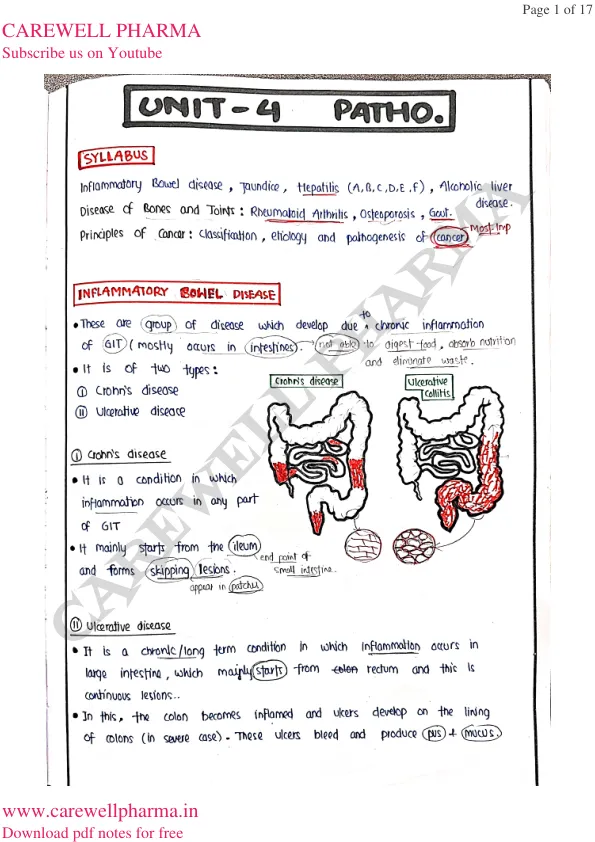 Page 1 of 17
CAREWELL PHARMA
Subscribe us on Youtube
UNIT-4 PATHO.
SYLLABUS
Inflammatory Bowel disease, Jaundice, Hepatitis (A,B,C,D,E,F), Alcoholic liver
disease.
Disease of Bones and Joints: Rheumatoid Arthritis, Osteoporosis, Gout.
Principles of Cancer: Classification, etiology and pathogenesis of cancer
Most Imp
INFLAMMATORY BOWEL DISEASE
• These are group of disease which develop due to chronic inflammation
of GIT (mostly occurs in intestines). not able to digest food, absorb nutrition
and eliminate waste.
• It is of two types:
(i) Crohn's disease
(ii) Ulcerative disease
Crohn's disease
Ulcerative Collitis
(i) Crohn's disease
• It is a condition in which
inflammation occurs in any part
of GIT
• It mainly starts from the ileum
end point of
small intestine.
and forms skipping lesions.
appear in patches
(ii) Ulcerative disease
• It is a chronic/long term condition in which inflammation occurs in
large intestine, which mainly starts from colon rectum and this is
continuous lesions..
• In this, the colon becomes inflamed and ulcers develop on the lining
of colons (in severe case). These ulcers bleed and produce pus + mucus.
CAREWELL PHARMA
www.carewellpharma.in
Download pdf notes for free